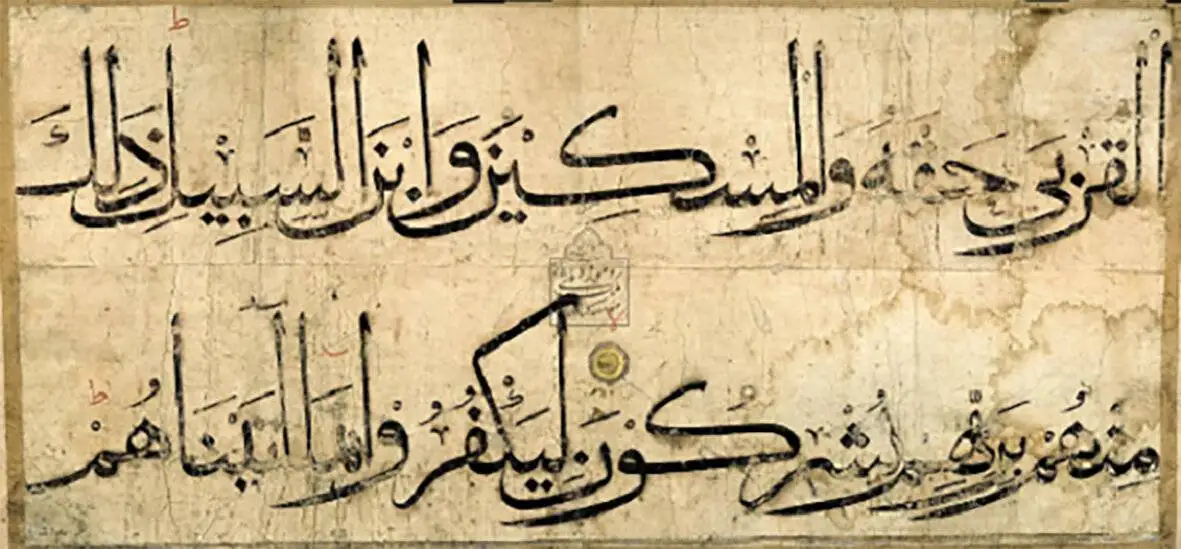 القُربَى حَقَّهُ وَالمِسكِينَ وَابنَ السَّبِيلِ ذَلِكَ
مِنهُم بِرَبِّهِم يُشرِكُونَ لِيَكفُرُوا بِمَا آتَينَاهُم